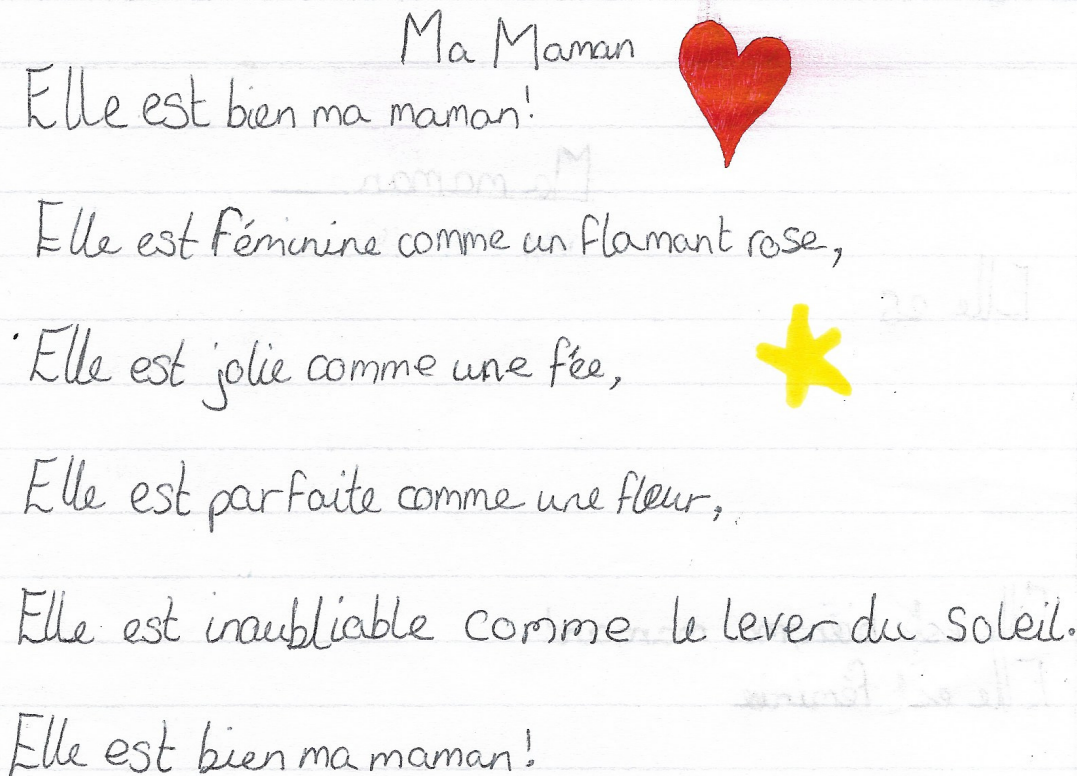 Ma Maman
Elle est bien ma maman!
Elle est féminine comme un flamant rose,
Elle est jolie comme une fée,
Elle est parfaite comme une fleur,
Elle est inaubliable comme le lever du soleil.
Elle est bien ma maman!